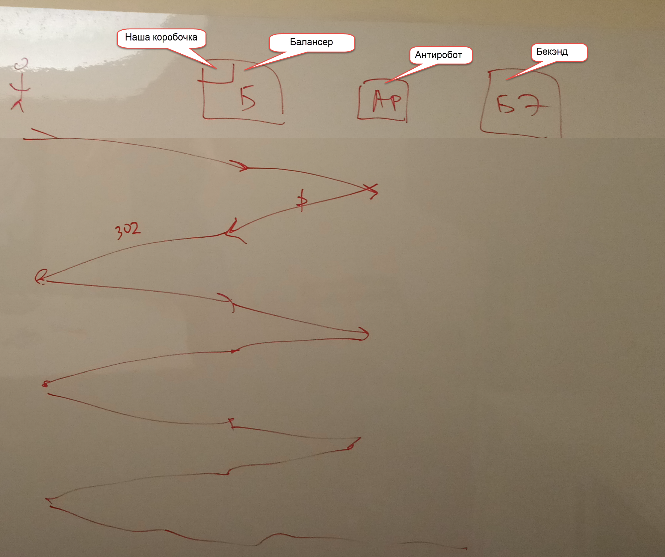 Наша коробочка
Балансер
Антиробот
Бекэнд
Б
АР
БЭ
302